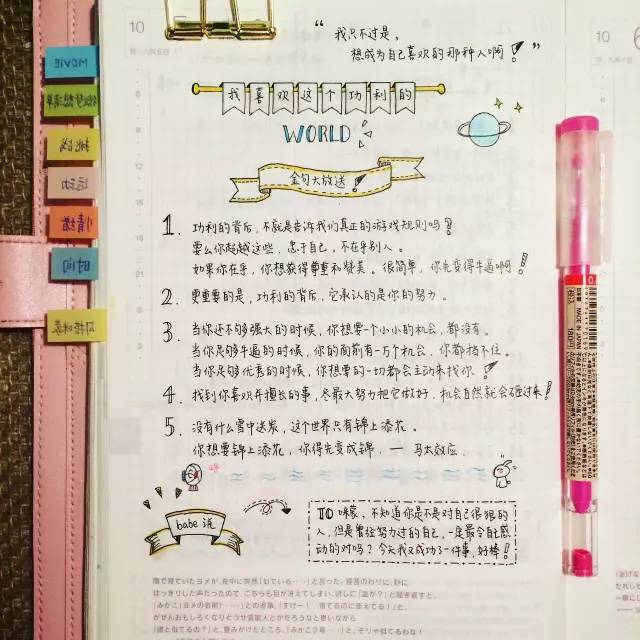 10
"我只不过是,
想成为自己喜欢的那种人啊!"
我喜欢这个功利的
WORLD
金句大放送!
1. 功利的背后,不就是告诉我们真正的游戏规则吗?
要么你超越这些,忠于自己,不在乎别人。
如果你在乎,你想获得尊重和赞美。很简单,你先变得牛逼啊!
2. 更重要的是,功利的背后,它承认的是你的努力。
3. 当你还不够强大的时候,你想要一个小小的机会,都没有。
当你足够牛逼的时候,你的面前有一万个机会,你都挡不住。
当你足够优秀的时候,你想要的一切都会主动来找你!
4. 找到你喜欢并擅长的事,尽最大努力把它做好,机会自然就会砸过来!
5. 没有什么雪中送炭,这个世界只有锦上添花。
你想要锦上添花,你得先变成锦,— 马太效应.
babe 说
TO 咪蒙,不知道你是不是对自己很狠的
人,但是曾经努力过的自己,一定最令自己感
动的对吗?今天我又成功了一件事,好棒!
MOVIE
运动
小情绪
时间
10
6
MADE IN JAPAN